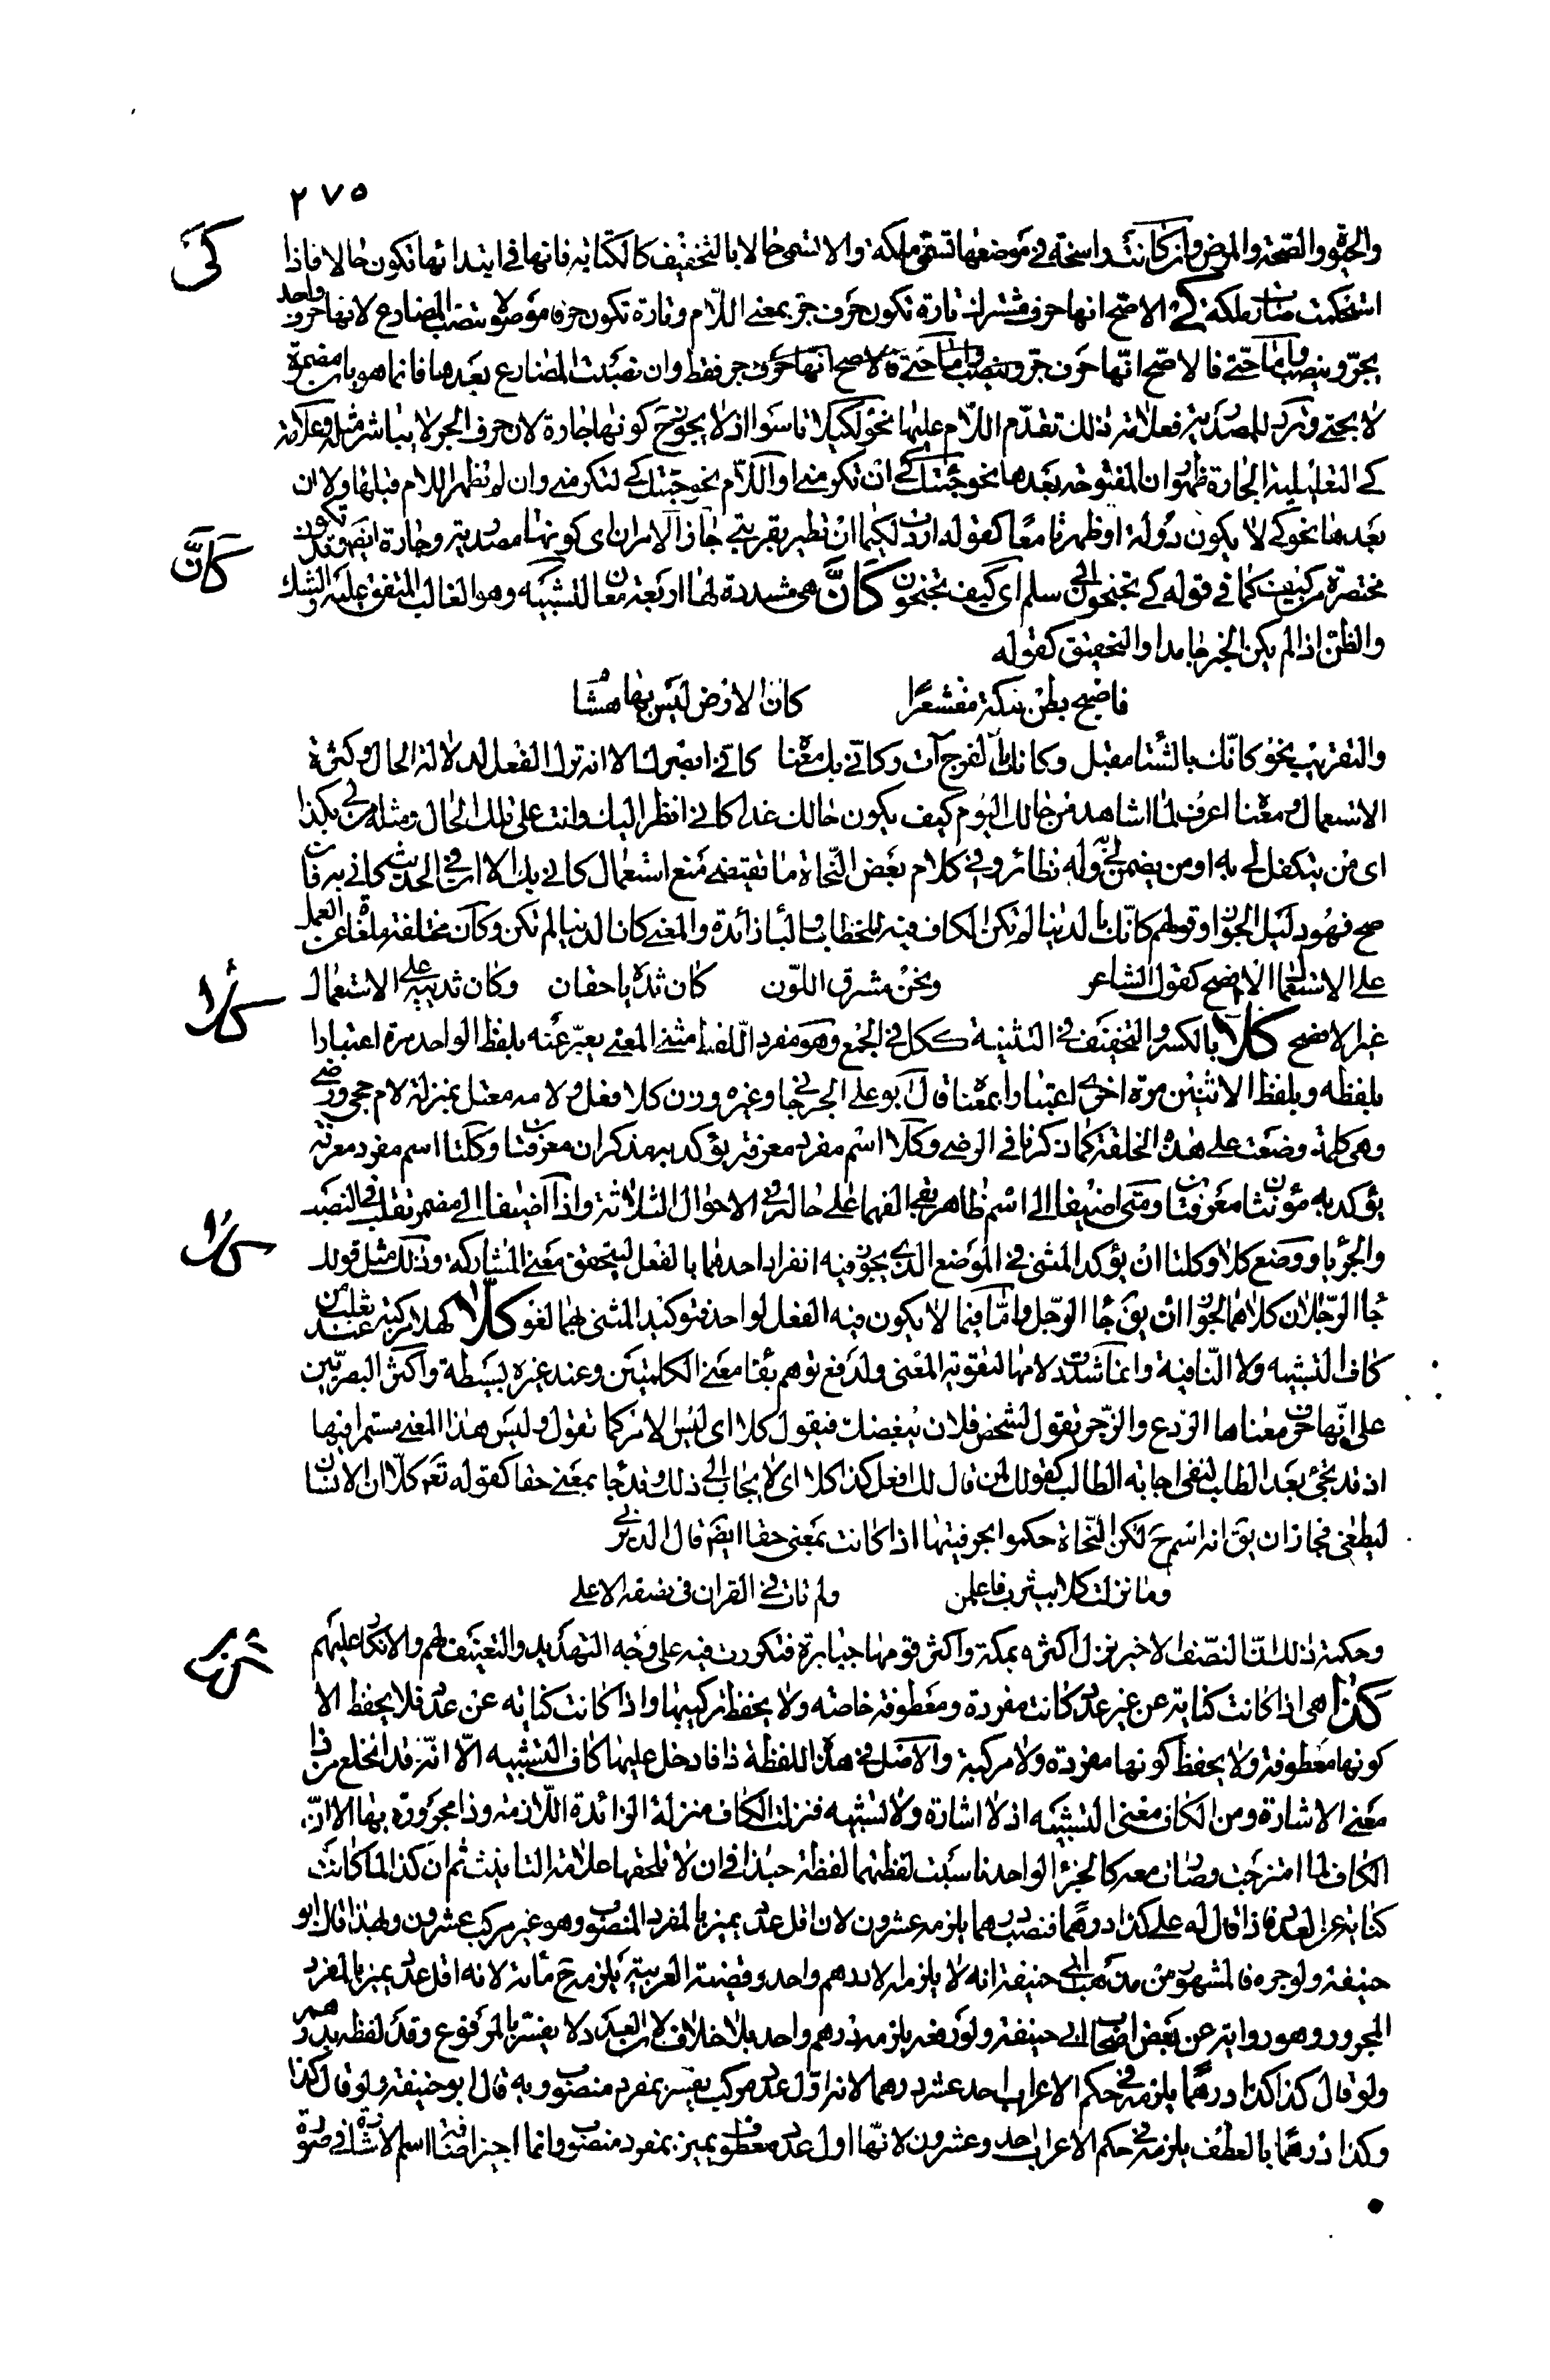 ٢٧٥
والحمرة والصحة والمرض وان كانت راسخة في موضعها تسمى ملكة والا تسمى حالا بالتخفيف كالكتابة فانها في ابتدائها تكون حالا فاذا
كي
استحكمت صارت ملكة كي الاصح انها حرف مشترك تارة تكون حرف جر بمعنى اللام وتارة تكون حرفا موصولا ينصب المضارع لا انها حرف واحد
يجر وينصب واما حتى فالاصح انها حرف جر فقط وان نصبت المضارع بعدها فانما هو بان مضمرة
لا بحتى وترد للمصدرية فعلامة ذلك تقدم اللام عليها نحو لكيلا تأسوا اذ لا يجوز ح كونها جارة لان حرف الجر لا يباشر مثله وعلامة
كي التعليلية الجارة ظهور ان المفتوحة بعدها نحو جئتك كي ان تكرمني او اللام نحو جئتك كي لتكرمني وان لم تظهر اللام قبلها ولا ان
بعدها نحو كي لا يكون دولة او ظهرتا معا كقوله اردت لكيما ان تطير بقربتي جاز الامران اي كونها مصدرية وجارة ايضا وقد تكون
كأن
مختصرة من كيف كما في قوله كي تجنحون الى سلم اي كيف تجنحون كأن هي مشددة لها اربعة معان التشبيه وهو الغالب المتفق عليه والشك
والظن اذا لم يكن الخبر جامدا والتحقيق كقوله
فاصبح بطن مكة مقشعرا كان الارض ليس بها هشام
والتقريب نحو كانك بالشتاء مقبل وكانك بالفرج آت وكاني بك معناه كاني ابصرك الا انه ترك الفعل لدلالة الحال وكثرة
الاستعمال ومعناه اعرف لما اشاهد من حالك اليوم كيف يكون حالك غدا كاني انظر اليك وانت على تلك الحال ومثله من لي بكذا
اي من يتكفل لي به او من يضمن لي به وله نظائر وفي كلام بعض النحاة ما يقتضي منع استعمال كاني بك الا ان في الحديث كاني به فان
صح فهو دليل الجواز وقولهم كانك بالدنيا لم تكن الكاف فيه للخطاب والباء زائدة والمعنى كان الدنيا لم تكن وكأن مخففة ملغاة عن العمل
على الاستعمال الافصح كقول الشاعر ونحر مشرق اللون كان ثدياه حقان وكان ثدييه على الاستعمال
كلا
غير الافصح كلا بالكسر والتخفيف في التثنية ككل في الجمع وهو مفرد اللفظ مثنى المعنى يعبر عنه بلفظ الواحد مرة اعتبارا
بلفظه وبلفظ الاثنين مرة اخرى اعتبارا بمعناه قال ابو علي الجرجاني وغيره وزن كلا فعل ولامه معتل بمنزلة لام حجى ورضى
وهي كلمة وضعت على هذه الخلقة كما ذكرنا في الوضع وكلا اسم مفرد معرفة يؤكد به مذكران معرفتان وكلتا اسم مفرد معرفة
يؤكد به مؤنثان معرفتان ومتى اضيفا الى اسم ظاهر بقي الفهما على حاله في الاحوال الثلاثة واذا اضيفا الى مضمر تقلب في النصب
كلا
والجر ياء ووضع كلا وكلتا ان يؤكد المثنى في الموضع الذي يجوز فيه انفراد احدهما بالفعل ليتحقق معنى المشاركة وذلك مثل قولك
جاء الرجلان كلاهما لجواز ان يق جاء الرجل واما فيما لا يكون فيه الفعل لواحد فتوكيد المثنى بهما لغو كلا كهلا مركبة عند ثعلب من
كاف التشبيه ولا النافية وانما شددت لامها لتقوية المعنى ولدفع توهم بقاء معنى الكلمتين وعند غيره بسيطة واكثر البصريين
على انها حرف معناها الردع والزجر تقول لشخص فلان يبغضك فيقول كلا اي ليس الامر كما تقول وليس هذا المعنى مستمرا فيها
اذ قد تجيء بعد الطلب لنفي اجابة الطالب كقولك لمن قال لك افعل كذا كلا اي لا يجاب الى ذلك وقد جاء بمعنى حقا كقوله تعم كلا ان الانسان
ليطغى فجاز ان يق انه اسم ح لكن النحاة حكموا بحرفيتها اذا كانت بمعنى حقا ايضم قال الديريني
وما نزلت كلا بيثرب فاعلمن ولم تات في القران في نصفه الاعلى
وحكمة ذلك ان النصف الاخير نزل اكثره بمكة واكثر قومها جبابرة فتكررت فيه على وجه التهديد والتعنيف لهم والانكار عليهم
كذا هي اذا كانت كناية عن غير عدد كانت مفردة ومعطوفة خاصة ولا يحفظ تركيبها واذا كانت كناية عن عدد فلا يحفظ الا
كونها معطوفة ولا يحفظ كونها مفردة ولا مركبة والاصل في هذه اللفظة ذا فادخل عليها كاف التشبيه الا انه قد انخلع من ذا
معنى الاشارة ومن الكاف معنى التشبيه اذ لا اشارة ولا تشبيه فنزلت الكاف منزلة الزائدة اللازمة وذا مجرورة بها الا ان
الكاف لما امتزجت وصارت معه كالجزء الواحد ناسبت لفظتهما لفظة حبذا في ان لا تلحقها علامة التانيث ثم ان كذا لما كانت
كناية عن العدد فاذا قال له علي كذا درهما فنصب درهما يلزمه عشرون لان اقل عدد يميز بالمفرد المنصوب وهو غير مركب عشرون وبهذا قال ابو
حنيفة ولو جره فالمشهور من مذهب ابي حنيفة انه لا يلزمه الا درهم واحد وقضية العربية يلزمه ح مأة لانه اقل عدد يميز بالمفرد
المجرور وهو رواية عن بعض اصحاب ابي حنيفة ولو رفعه يلزمه درهم واحد بلا خلاف لان العدد لا يفسر بالمرفوع وقد لفظ بدرهم
ولو قال كذا كذا درهما يلزمه في حكم الاعراب احد عشر درهما لانه اول عدد مركب يفسر بمفرد منصوب وبه قال ابو حنيفة ولو قال كذا
وكذا درهما بالعطف يلزمه في حكم الاعراب احد وعشرون لانها اول عدد معطوف يميز بمفرد منصوب وانما اجيز اضافة اسم الاشارة في صورة